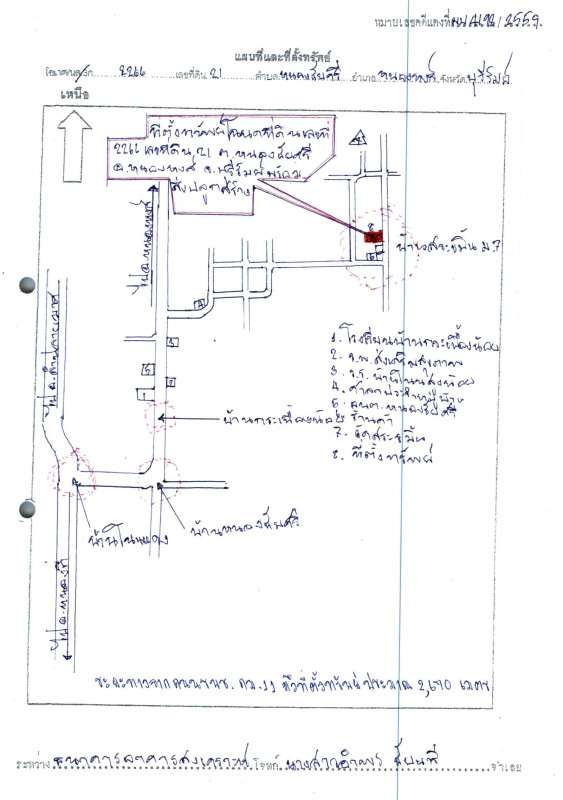 หมายเลขคดีแดงที่ /2559
แผนที่และที่ตั้งทรัพย์
โฉนดเลขที่ 2266 เลขที่ดิน 21 ตำบล หนองชัยศรี อำเภอ หนองหงส์ จังหวัด บุรีรัมย์
เหนือ
ที่ตั้งทรัพย์โฉนดที่ดินเลขที่
2266 เลขที่ดิน 21 ต.หนองชัยศรี
อ.หนองหงส์ จ.บุรีรัมย์ พร้อม
สิ่งปลูกสร้าง
ไป อ.หนองหงส์
บ้านสระขมิ้น ม.7
ไป อ.ลำปลายมาศ
1. โรงเรียนบ้านกระเบื้องน้อย
2. ร.พ.ส่งเสริมสุขภาพ
3. ร.ร.บ้านโนน
4. ศาลาประจำหมู่บ้าน
5. อบต.หนองชัยศรี
6. ร้านค้า
7. วัดสระขมิ้น
8. ที่ตั้งทรัพย์
บ้านกระเบื้องน้อย
บ้านหนองชัยศรี
บ้านโนนแดง
ไป อ.หนองกี่
ระยะทางจากถนน กม. 11 ถึงที่ตั้งทรัพย์ ประมาณ 2,670 เมตร
ระหว่าง ธนาคารอาคารสงเคราะห์ โจทก์ นางสาวอำพร จำเลย